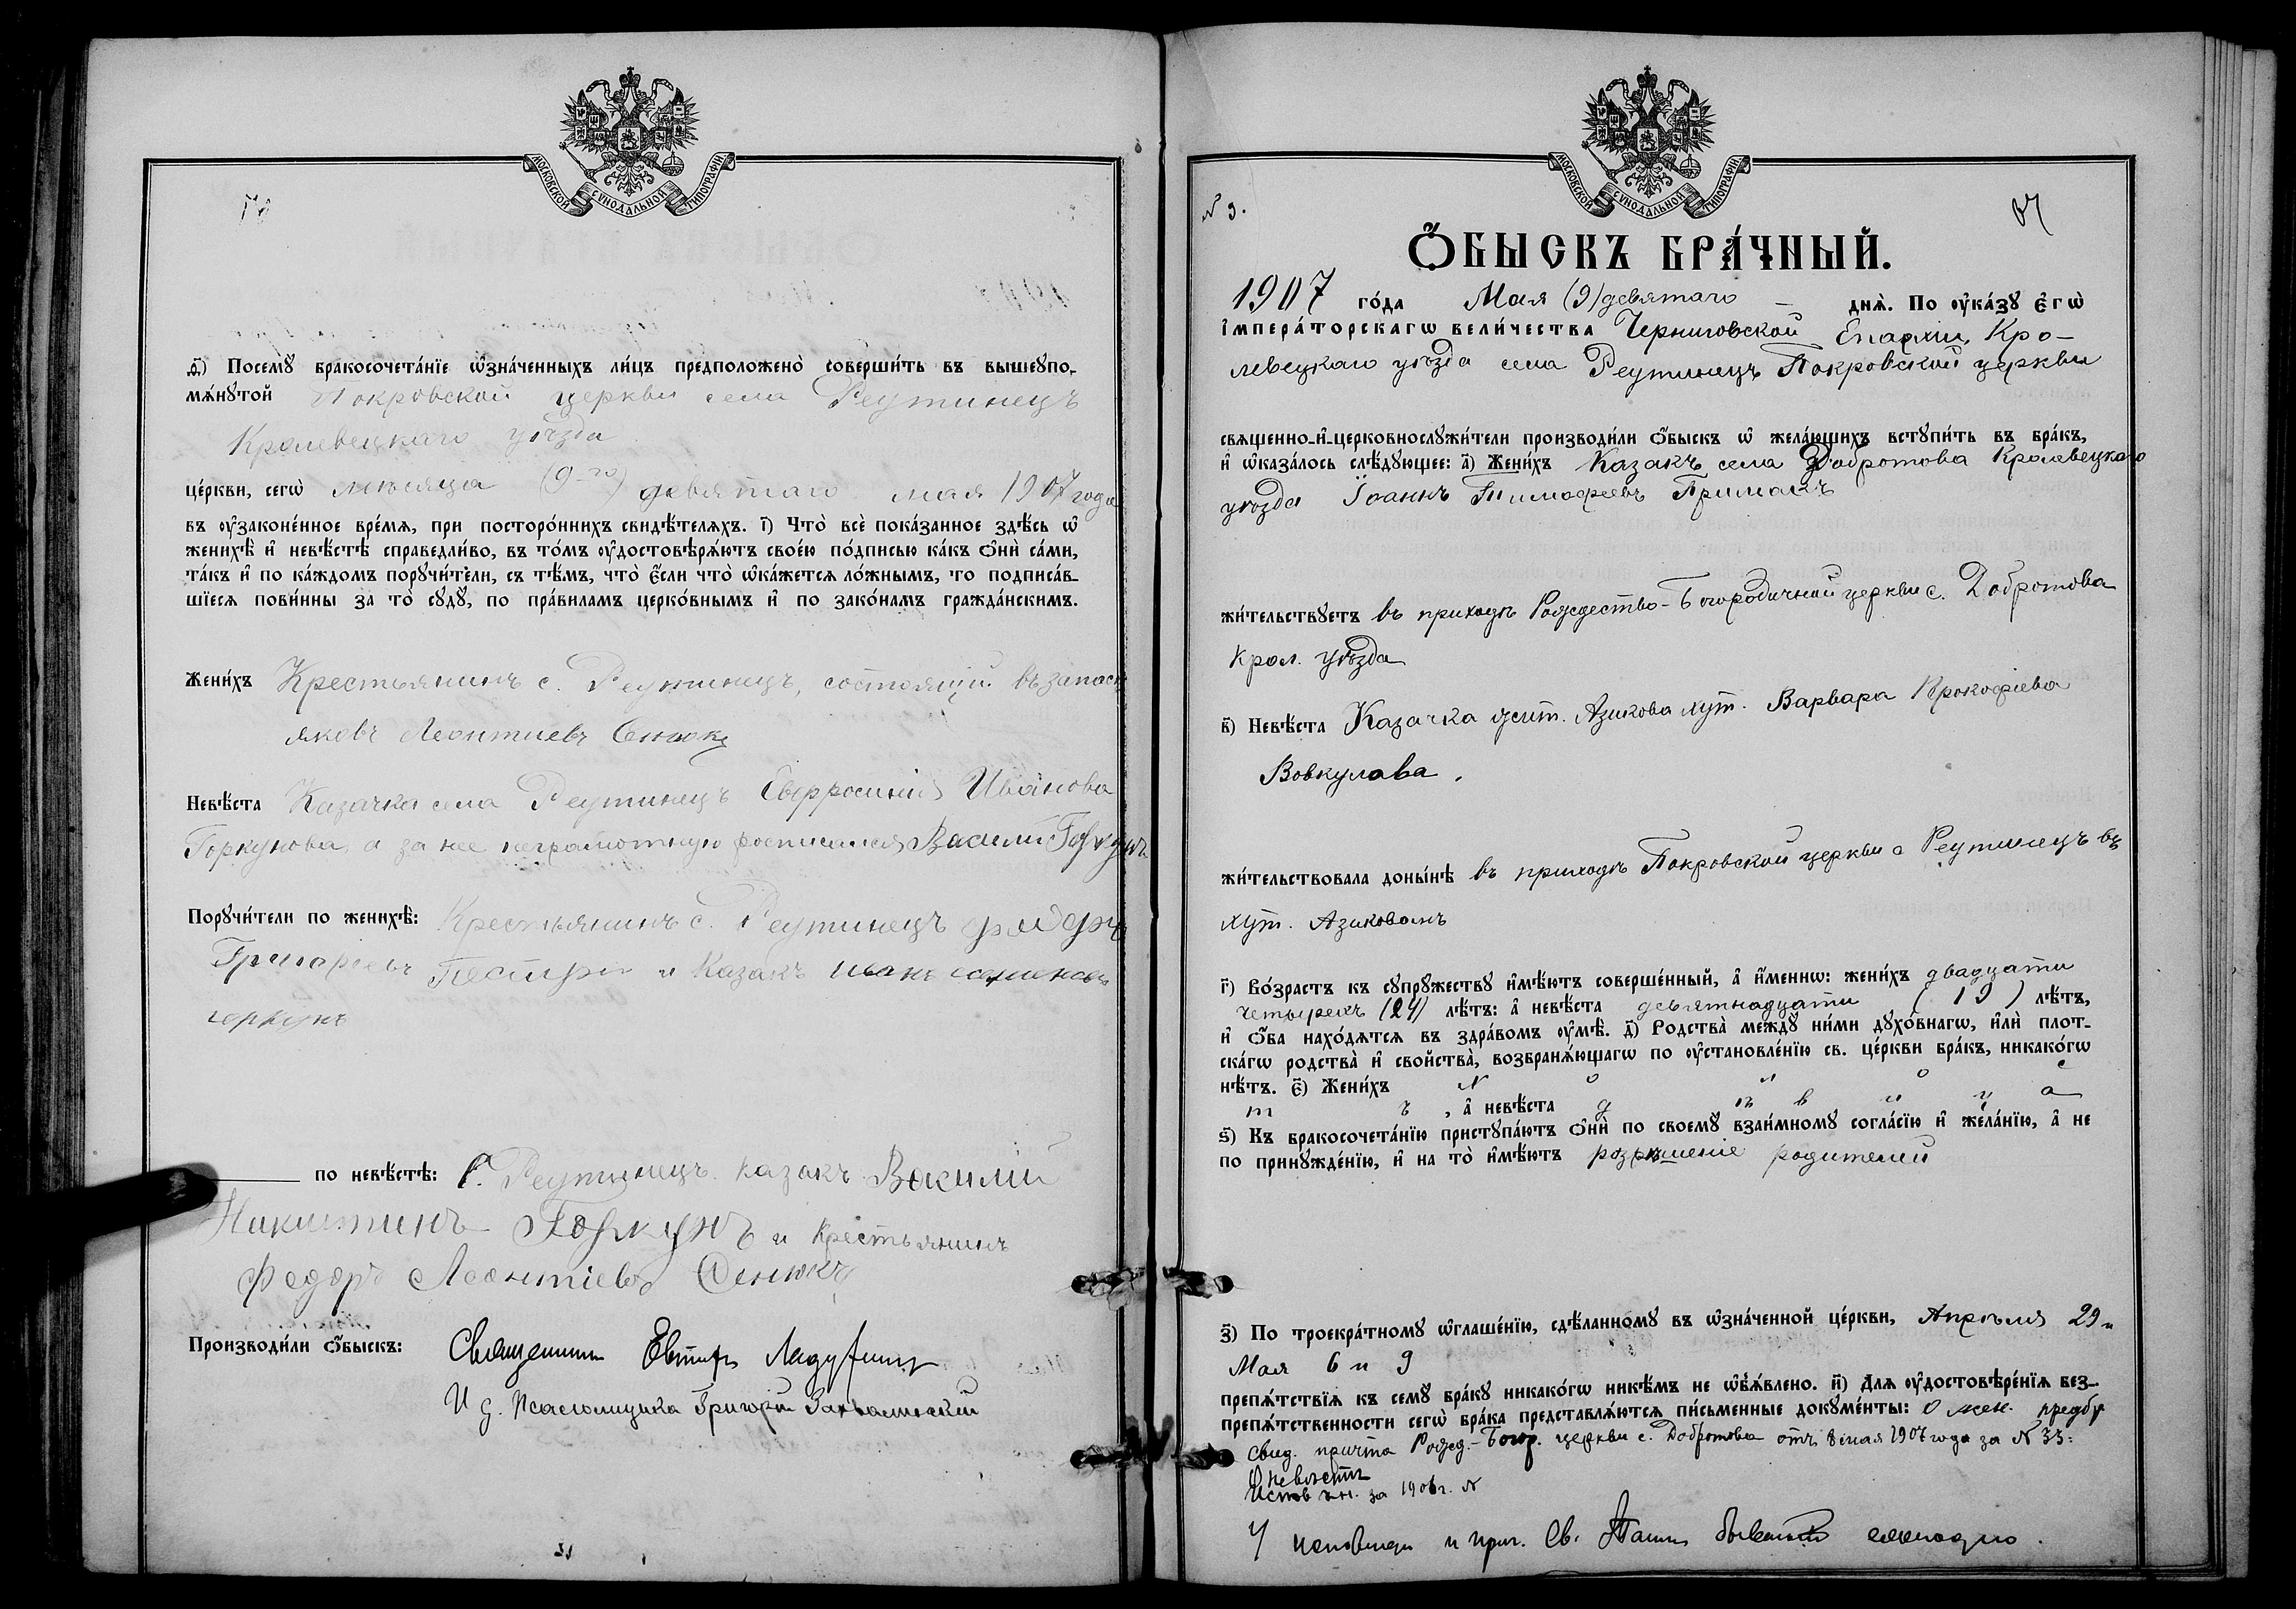 МОСКОВСКОЙ СѴНОДАЛЬНОЙ ТИПОГРАФІИ
ѳ҃) Посемꙋ̀ бракосочета́нїе ѡ҆зна́ченныхъ ли́цъ предположено̀ соверши́ть въ вышеꙋпо-
мѧ́нꙋтой Покровской церкви села Реутинецъ
Кролевецкаго уѣзда
це́ркви, сегѡ̀ мѣсяца (9-го) девятаго мая 1907 года
въ ᲂу҆законе́нное вре́мѧ, при посторо́ннихъ свидѣ́телѧхъ. і҃) Что̀ всѐ пока́занное здѣ́сь ѡ҆
женихѣ̀ и҆ невѣ́стѣ справедли́во, въ то́мъ ᲂу҆достовѣрѧ́ютъ свое́ю по́дписью ка́къ ѻ҆нѝ са́ми,
та́къ и҆ по ка́ждомъ порꙋчи́тели, съ тѣ́мъ, что̀ є҆́сли что̀ ѡ҆ка́жетсѧ ло́жнымъ, то подписа́в-
шїесѧ пови́нны за то̀ сꙋдꙋ̀, по пра́виламъ церко́внымъ и҆ по зако́намъ гражда́нскимъ.
Жени́хъ Крестьянинъ с. Реутинецъ, состоящій въ запасѣ
яковъ Леонтиевъ Сенюкъ
Невѣ́ста Казачка села Реутинецъ Евфросинія Иванова
Горкунова, а за нее неграмотную росписался Василий Горкунъ
Порꙋчи́тели по женихѣ̀: Крестьянинъ с. Реутинецъ
Григориевъ и Казакъ иванъ
горкунъ
по невѣ́стѣ: с. Реутинецъ казакъ Василий
Никитинъ Горкунъ и крестьянинъ
Федоръ Леонтіевъ Сенюкъ
Производи́ли ѻ҆́быскъ: Священникъ
И д. Псаломщика Григорій
МОСКОВСКОЙ СѴНОДАЛЬНОЙ ТИПОГРАФІИ
N 9.
Ѻ҆́БЫСКЪ БРА́ЧНЫЙ.
1907 го́да Мая (9) девятаго днѧ̀. По ᲂу҆ка́зꙋ є҆гѡ̀
і҆мпера́торскагѡ вели́чества Черниговской Епархіи, Кро-
левецкаго уѣзда села Реутинецъ Покровской церкви
свѧщенно-и҆-церковнослꙋжи́тели производи́ли ѻ҆́быскъ ѡ҆ жела́ющихъ встꙋпи́ть въ бра́къ,
и҆ ѡ҆каза́лось слѣ́дꙋющее: а҃) Жени́хъ Казакъ села Добротова Кролевецкаго
уѣзда Іоаннъ Тимофеевъ Примакъ
жи́тельствꙋетъ въ приходѣ Рождество-Богородичной церкви с. Добротова
Крол. уѣзда
в҃) Невѣ́ста Казачка жит. Азикова хут. Варвара Прокофіева
Вовкулава.
жи́тельствовала доны́нѣ въ приходѣ Покровской церкви с Реутинецъ въ
хут. Азиковомъ
г҃) Во́зрастъ къ сꙋпрꙋ́жествꙋ и҆мѣ́ютъ соверше́нный, а҆ и҆́меннѡ: жени́хъ двадцати
четырехъ (24) лѣ́тъ: а҆ невѣ́ста девятнадцати (19) лѣ́тъ,
и҆ ѻ҆́ба нахо́дѧтсѧ въ здра́вомъ ᲂу҆мѣ̀. д҃) Родства̀ междꙋ̀ ни́ми дꙋхо́внагѡ, и҆лѝ плот-
ска́гѡ родства̀ и҆ сво́йства̀, возбранѧ́ющагѡ по ᲂу҆становле́нїю св. це́ркви бра́къ, никако́гѡ
нѣ́тъ. є҃) Жени́хъ х о л о с
т ъ , а҆ невѣ́ста д ѣ в и ц а
ѕ҃) Къ бракосочета́нїю пристꙋпа́ютъ ѻ҆нѝ по своемꙋ̀ взаи́мномꙋ согла́сїю и҆ жела́нїю, а҆ не
по принꙋжде́нїю, и҆ на то̀ и҆мѣ́ютъ розрѣшеніе родителей
з҃) По троекра́тномꙋ ѡ҆глаше́нїю, сдѣ́ланномꙋ въ ѡ҆зна́ченной це́ркви, Апрѣля 29 и
Мая 6 и 9
препѧ́тствїѧ къ семꙋ̀ бра́кꙋ никако́гѡ никѣ́мъ не ѡ҆б̾ѧ́влено. и҃) Длѧ ᲂу҆достовѣре́нїѧ без-
препѧ́тственности сегѡ̀ бра́ка представлѧ́ютсѧ пи́сьменные докꙋме́нты: О жен. предбр
свид. причта Рожд.-Богор. церкви с. Добротова отъ 8 мая 1907 года за N 33:
О невѣстѣ
за 1906 г. N
У исповѣди и прич. Св. Таинъ